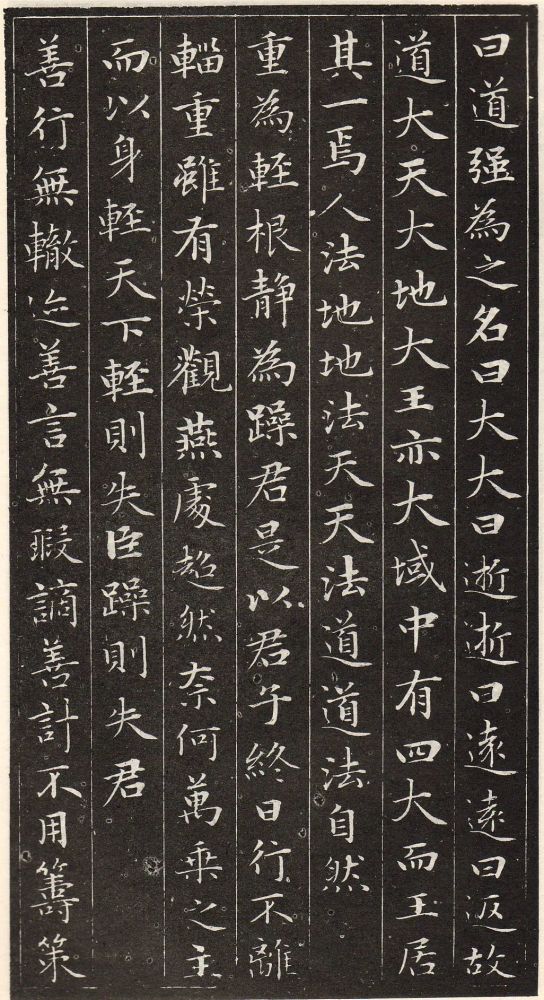 曰道强為之名曰大大曰逝逝曰遠遠曰返故
道大天大地大王亦大域中有四大而王居
其一焉人法地地法天天法道道法自然
重為輊根静為躁君是以君子終日行不離
輜重雖有榮觀燕處超然奈何萬乘之主
而以身輊天下輊則失臣躁則失君
善行無轍迹善言無瑕謫善計不用籌策